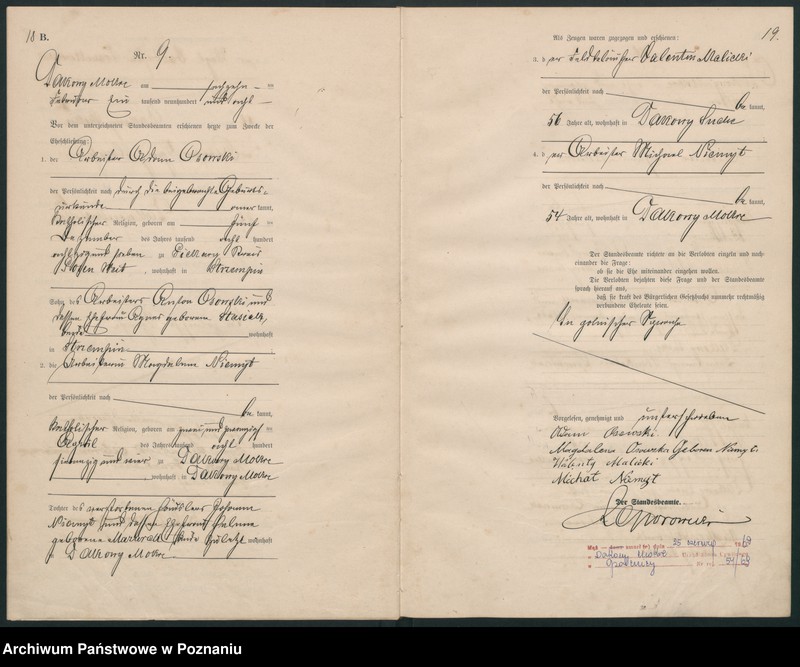 18 B.
Nr. 9.
Dakowy Mokre am sechzehn ten
Februar Ein tausend neunhundert und acht
Vor dem unterzeichneten Standesbeamten erschienen heute zum Zwecke der
Eheschließung:
1. der Arbeiter Adam Osowski
der Persönlichkeit nach durch die beigebrachte Geburts-
urkunde kannt,
katholischer Religion, geboren am fünf ten
Dezember des Jahres tausend acht hundert
achtzig und sieben zu Kreis
Posen West, wohnhaft in Strempin
Sohn des Arbeiters Anton Osowski und
dessen Ehefrau Agnes geborene
beide wohnhaft
in Strempin
2. die Arbeiterin Magdalena Niemyt
der Persönlichkeit nach
be kannt,
katholischer Religion, geboren am zwei und zwanzig ten
April des Jahres tausend acht hundert
und vier zu Dakowy Mokre
wohnhaft in Dakowy Mokre
Tochter des verstorbenen Häuslers Johann
Niemyt und dessen Ehefrau
geborene zuletzt wohnhaft
in Dakowy Mokre
19.
Als Zeugen waren zugezogen und erschienen:
3. der Valentin Malicki
der Persönlichkeit nach
be kannt,
56 Jahre alt, wohnhaft in Dakowy Suche
4. der Arbeiter Michael Niemyt
der Persönlichkeit nach
be kannt,
54 Jahre alt, wohnhaft in Dakowy Mokre
Der Standesbeamte richtete an die Verlobten einzeln und nach-
einander die Frage:
ob sie die Ehe miteinander eingehen wollen.
Die Verlobten bejahten diese Frage und der Standesbeamte
sprach hierauf aus,
daß sie kraft des Bürgerlichen Gesetzbuchs nunmehr rechtmäßig
verbundene Eheleute seien.
In polnischer Sprache
Vorgelesen, genehmigt und unterschrieben
Adam Osowski
Magdalena Osowska Geboren Niemyt
Walenty Malicki
Michał Niemyt
Der Standesbeamte.
25 czerwca 1969
Dakowy Mokre
Archiwum Państwowe w Poznaniu